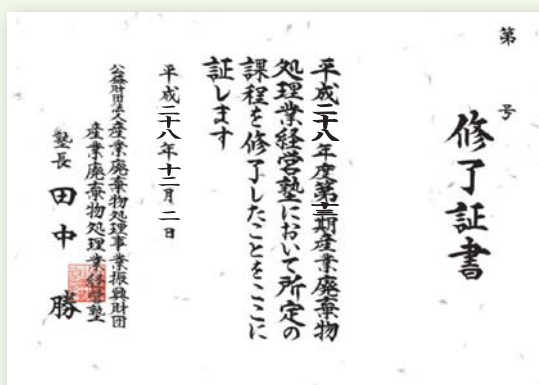 第　号
修了証書
平成二十八年度第十三期産業廃棄物
処理業経営塾において所定の
課程を修了したことをここに
証します
平成二十八年十二月二日
公益財団法人産業廃棄物処理事業振興財団
産業廃棄物処理業経営塾
塾長　田中　勝